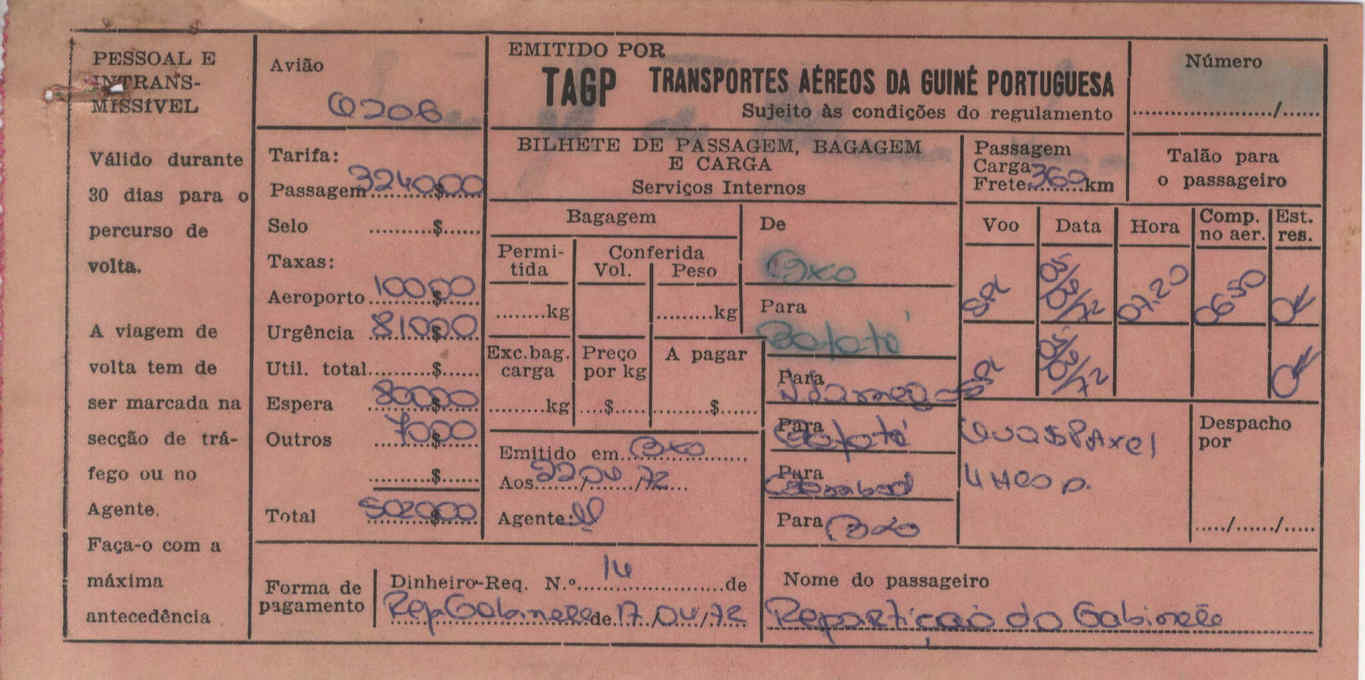 PESSOAL E
INTRANS-
MISSÍVEL
Válido durante
30 dias para o
percurso de
volta.
A viagem de
volta tem de
ser marcada na
secção de trá-
fego ou no
Agente.
Faça-o com a
máxima
antecedência
Avião
Tarifa:
Passagem 3240$00
Selo ..........$......
Taxas:
Aeroporto 100$00
Urgência 810$00
Util. total..........$......
Espera 800$00
Outros 70$00
..........$......
Total 5020$00
EMITIDO POR
TAGP TRANSPORTES AÉREOS DA GUINÉ PORTUGUESA
Sujeito às condições do regulamento
Número
................../......
BILHETE DE PASSAGEM, BAGAGEM
E CARGA
Serviços Internos
Passagem
Carga
Frete 360 km
Talão para
o passageiro
Bagagem
Permi-
tida
Conferida
Vol. Peso
........kg .........kg
Exc. bag.
carga
Preço
por kg
A pagar
........kg ....$..... ........$......
Emitido em Bxo
Aos 22/04/72
Agente:
De
Bxo
Para
Bafatá
Para
Para
Bafatá
Para
Para Bxo
Voo Data Hora Comp.
no aer. Est.
res.
SPL 05/72 07.20 06.50 OK
SPL 05/72 OK
4 H00 p.
Despacho
por
...../....../.....
Forma de
pagamento
Dinheiro-Req. N.º 14 de
Rep Gabinete de 17/04/72
Nome do passageiro
Repartição do Gabinete